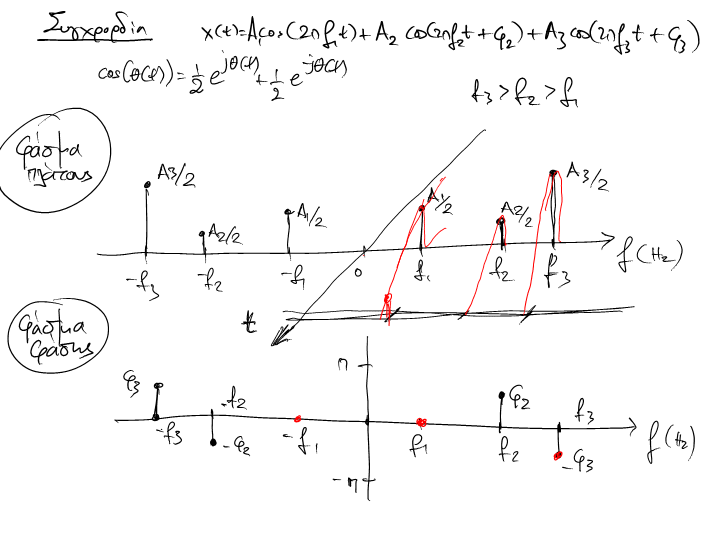 Συγχρορδία x(t)=A₁cos(2πf₁t)+A₂ cos(2πf₂t+φ₂)+A₃cos(2πf₃t+φ₃)
cos(θ(t))=1/2 e^{jθ(t)}+1/2 e^{-jθ(t)}
f₃>f₂>f₁
φάσμα
πλάτους
A3/2 A2/2 A1/2 A1/2 A2/2 A3/2
-f₃ -f₂ -f₁ 0 f₁ f₂ f₃ f(Hz)
t
φάσμα
φάσης
π
φ₃ -f₂ φ₂ f₃
-f₃ -φ₂ -f₁ f₁ f₂ -φ₃ f(Hz)
-π